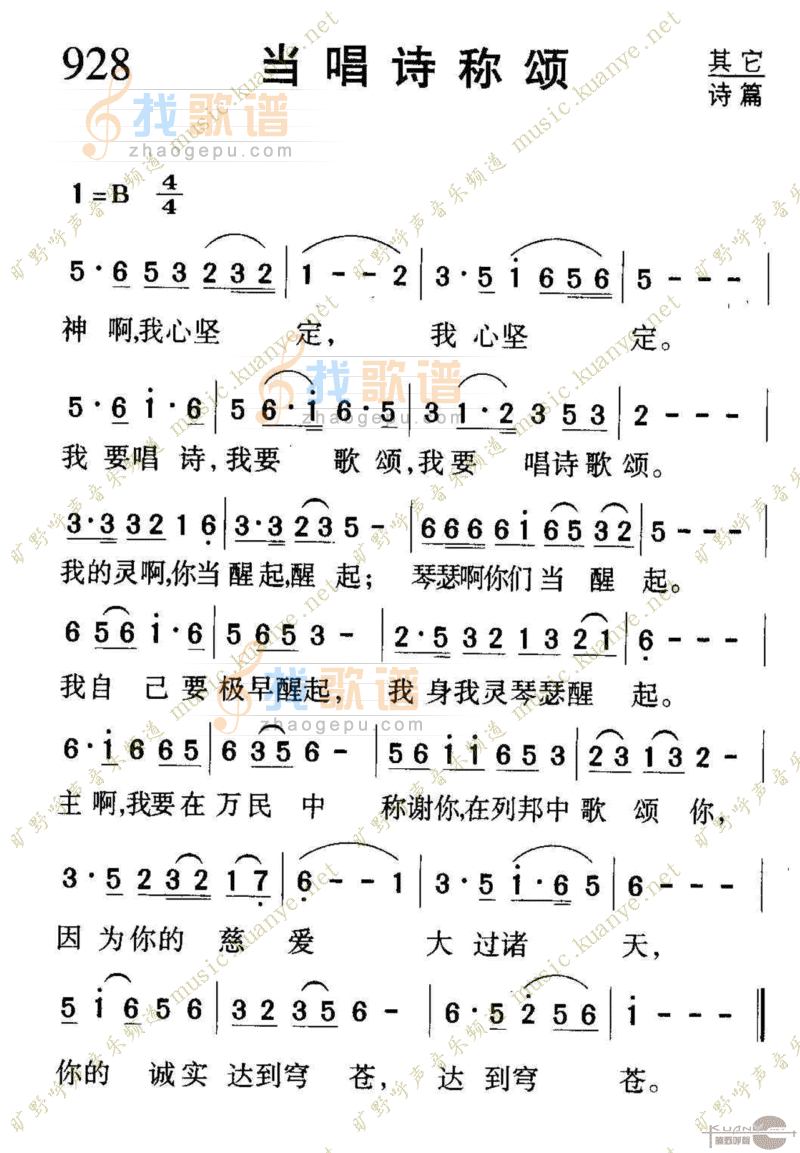 928 当唱诗称颂 其它
诗篇
找歌谱
zhaogepu.com
1=B 4/4
5·6 5 3 2 3 2 | 1 - - 2 | 3·5 i 6 5 6 | 5 - - - |
神啊,我心坚 定, 我 心坚 定。
5·6 i·6 | 5 6·i 6·5 | 3 1·2 3 5 3 | 2 - - - |
我 要唱 诗,我要 歌 颂,我要 唱诗歌颂。
3·3 3 2 1 6 | 3·3 2 3 5 - | 6 6 6 6 i 6 5 3 2 | 5 - - - |
我的灵啊,你当醒起,醒 起； 琴瑟啊你们当 醒 起。
6 5 6 i·6 | 5 6 5 3 - | 2·5 3 2 1 3 2 1 | 6 - - - |
我自 己要极早醒起, 我 身我灵琴瑟醒 起。
找歌谱
zhaogepu.com
6·i 6 6 5 | 6 3 5 6 - | 5 6 i i 6 5 3 | 2 3 1 3 2 - |
主啊,我要在万民 中 称谢你,在列邦中歌 颂 你,
3·5 2 3 2 1 7 | 6 - - 1 | 3·5 i·6 5 | 6 - - - |
因 为你的 慈 爱 大 过诸 天,
5 i 6 5 6 | 3 2 3 5 6 - | 6·5 2 5 6 | i - - - ‖
你的 诚实 达到穹 苍, 达 到穹 苍。
旷野呼声音乐频道 music.kuanye.net